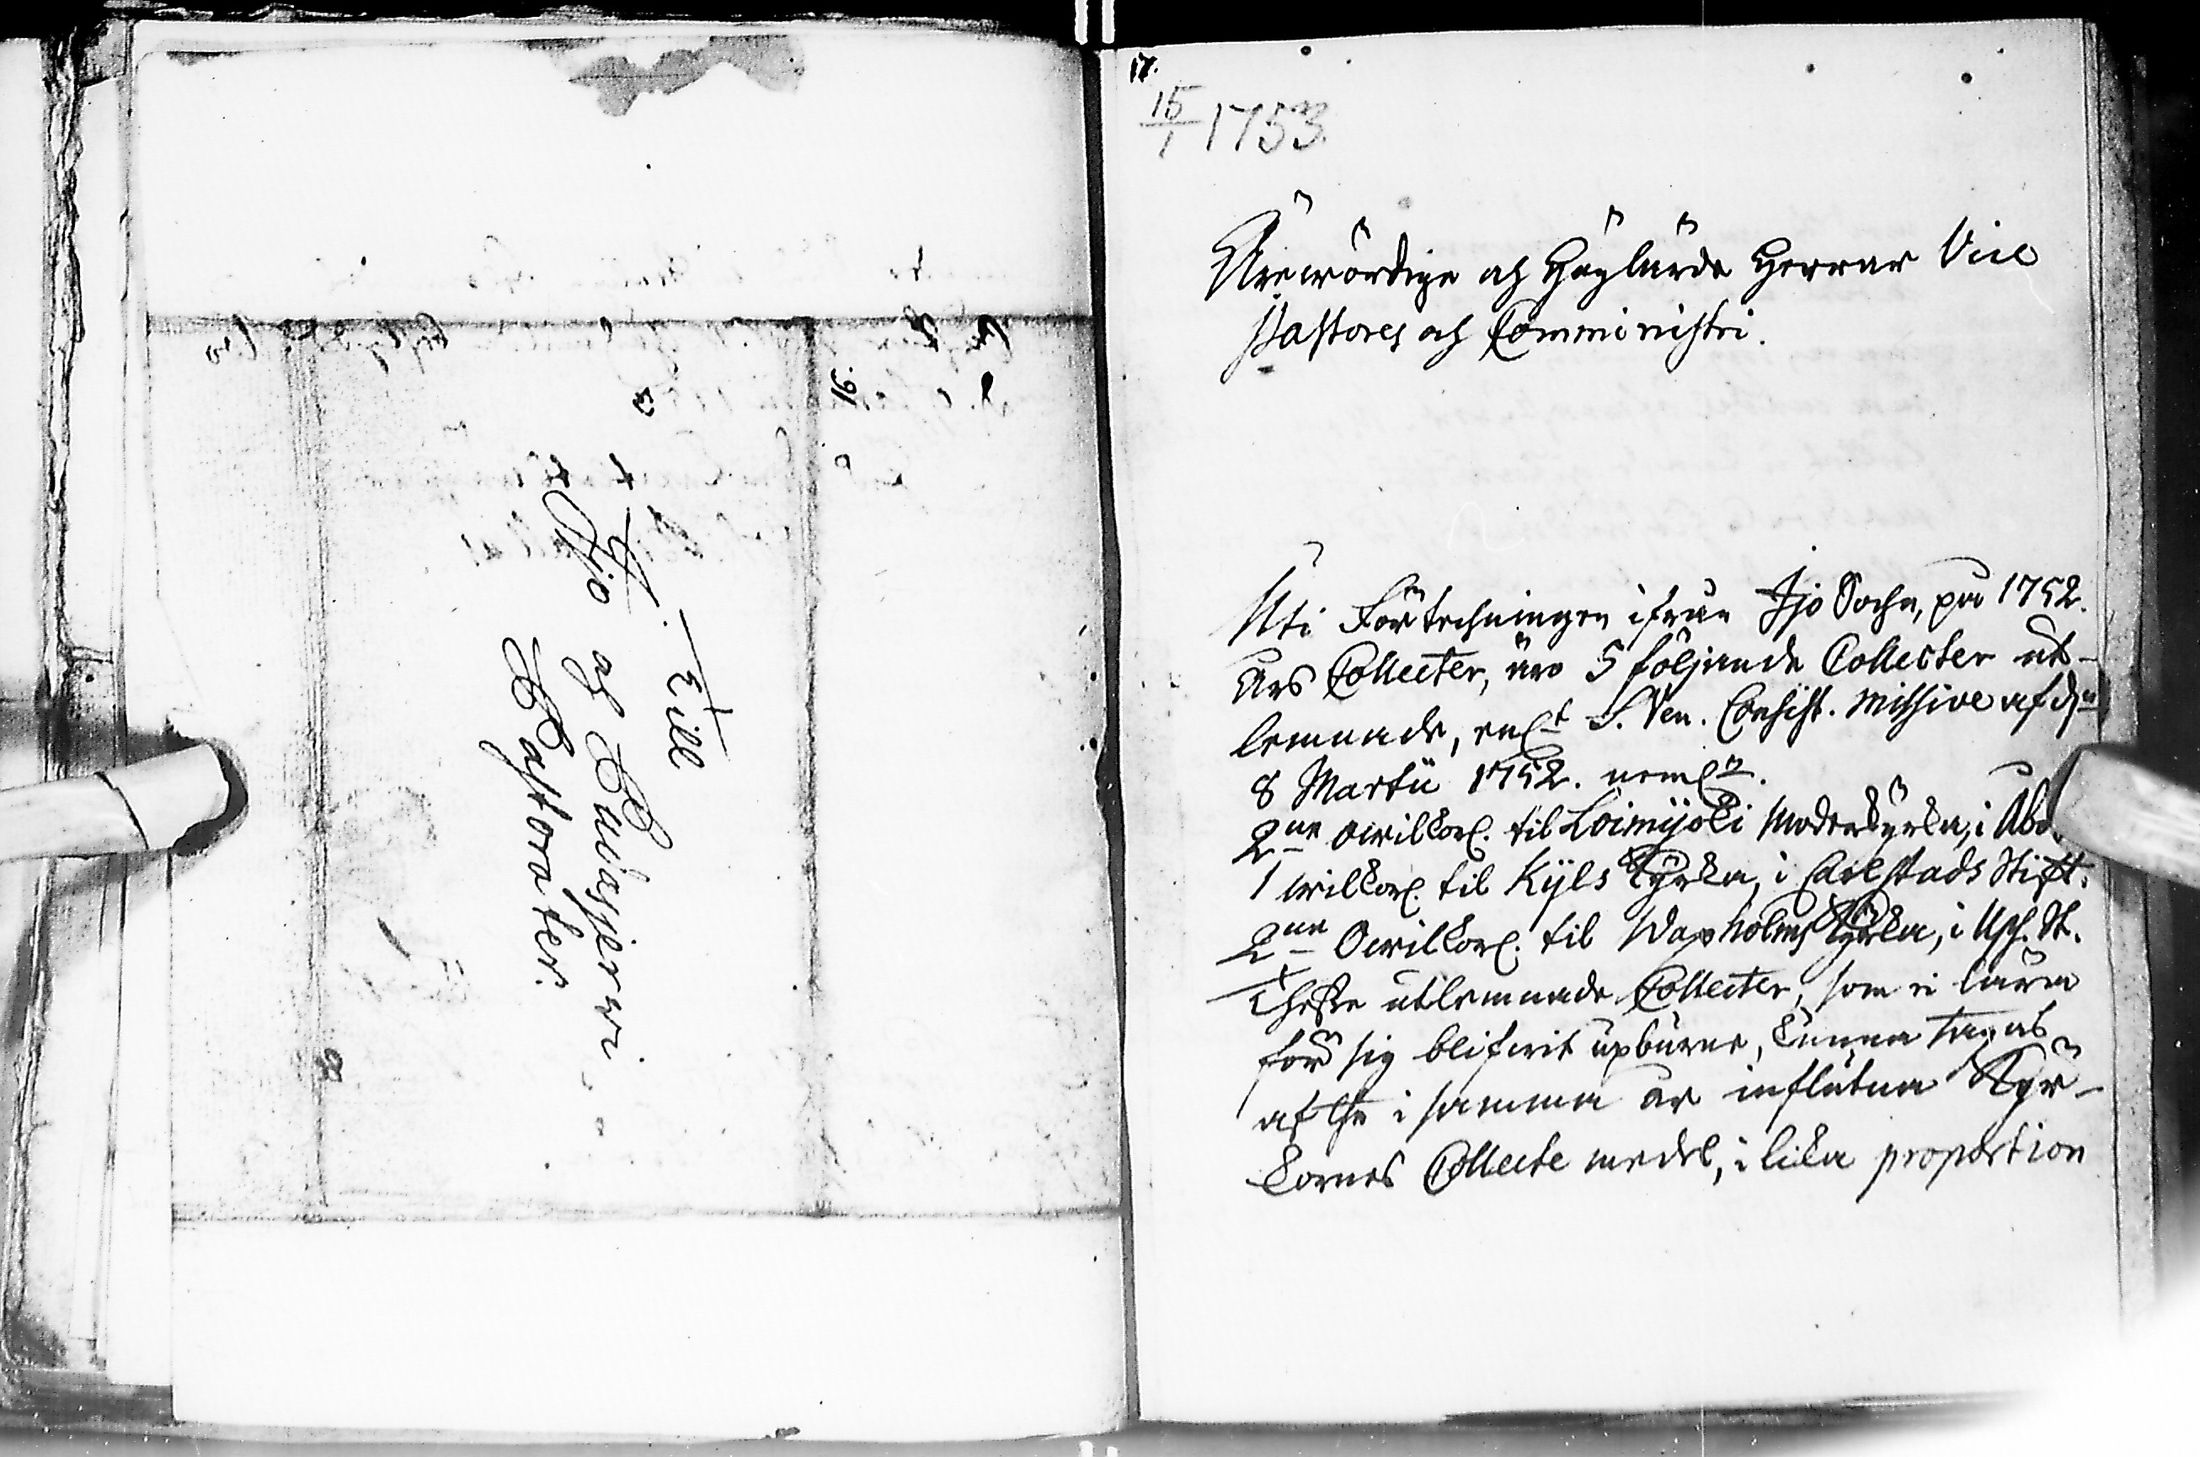 16.
Till
Ijo och Pudasjerwi
Pastorater.
17.
15/1 1753
Ärewördige och Höglärde Herrar Vice
Pastores och Comministri.
Uti Förtechningen ifrån Ijo Sochn, på 1752.
Års Collecter, äro 5 följande Collecter ut-
lemnade, enl:t S. Ven. Consist. missive af d:n
8 Martii 1752. neml:n
2:ne owilkorl. til Loimijoki Moderkyrka, i Åbo
1 wilkorl. til Kyls Kyrka, i Carlstads Stift.
2:ne Owilkorl. til Waxholms Kyrka, i Ups. St.
Thesse utlemnade Collecter, som ei lära
för sig blifwit upburne, kunna tagas
af the i samma år influtna Kyr-
kornes Collecte medel, i lika proportion